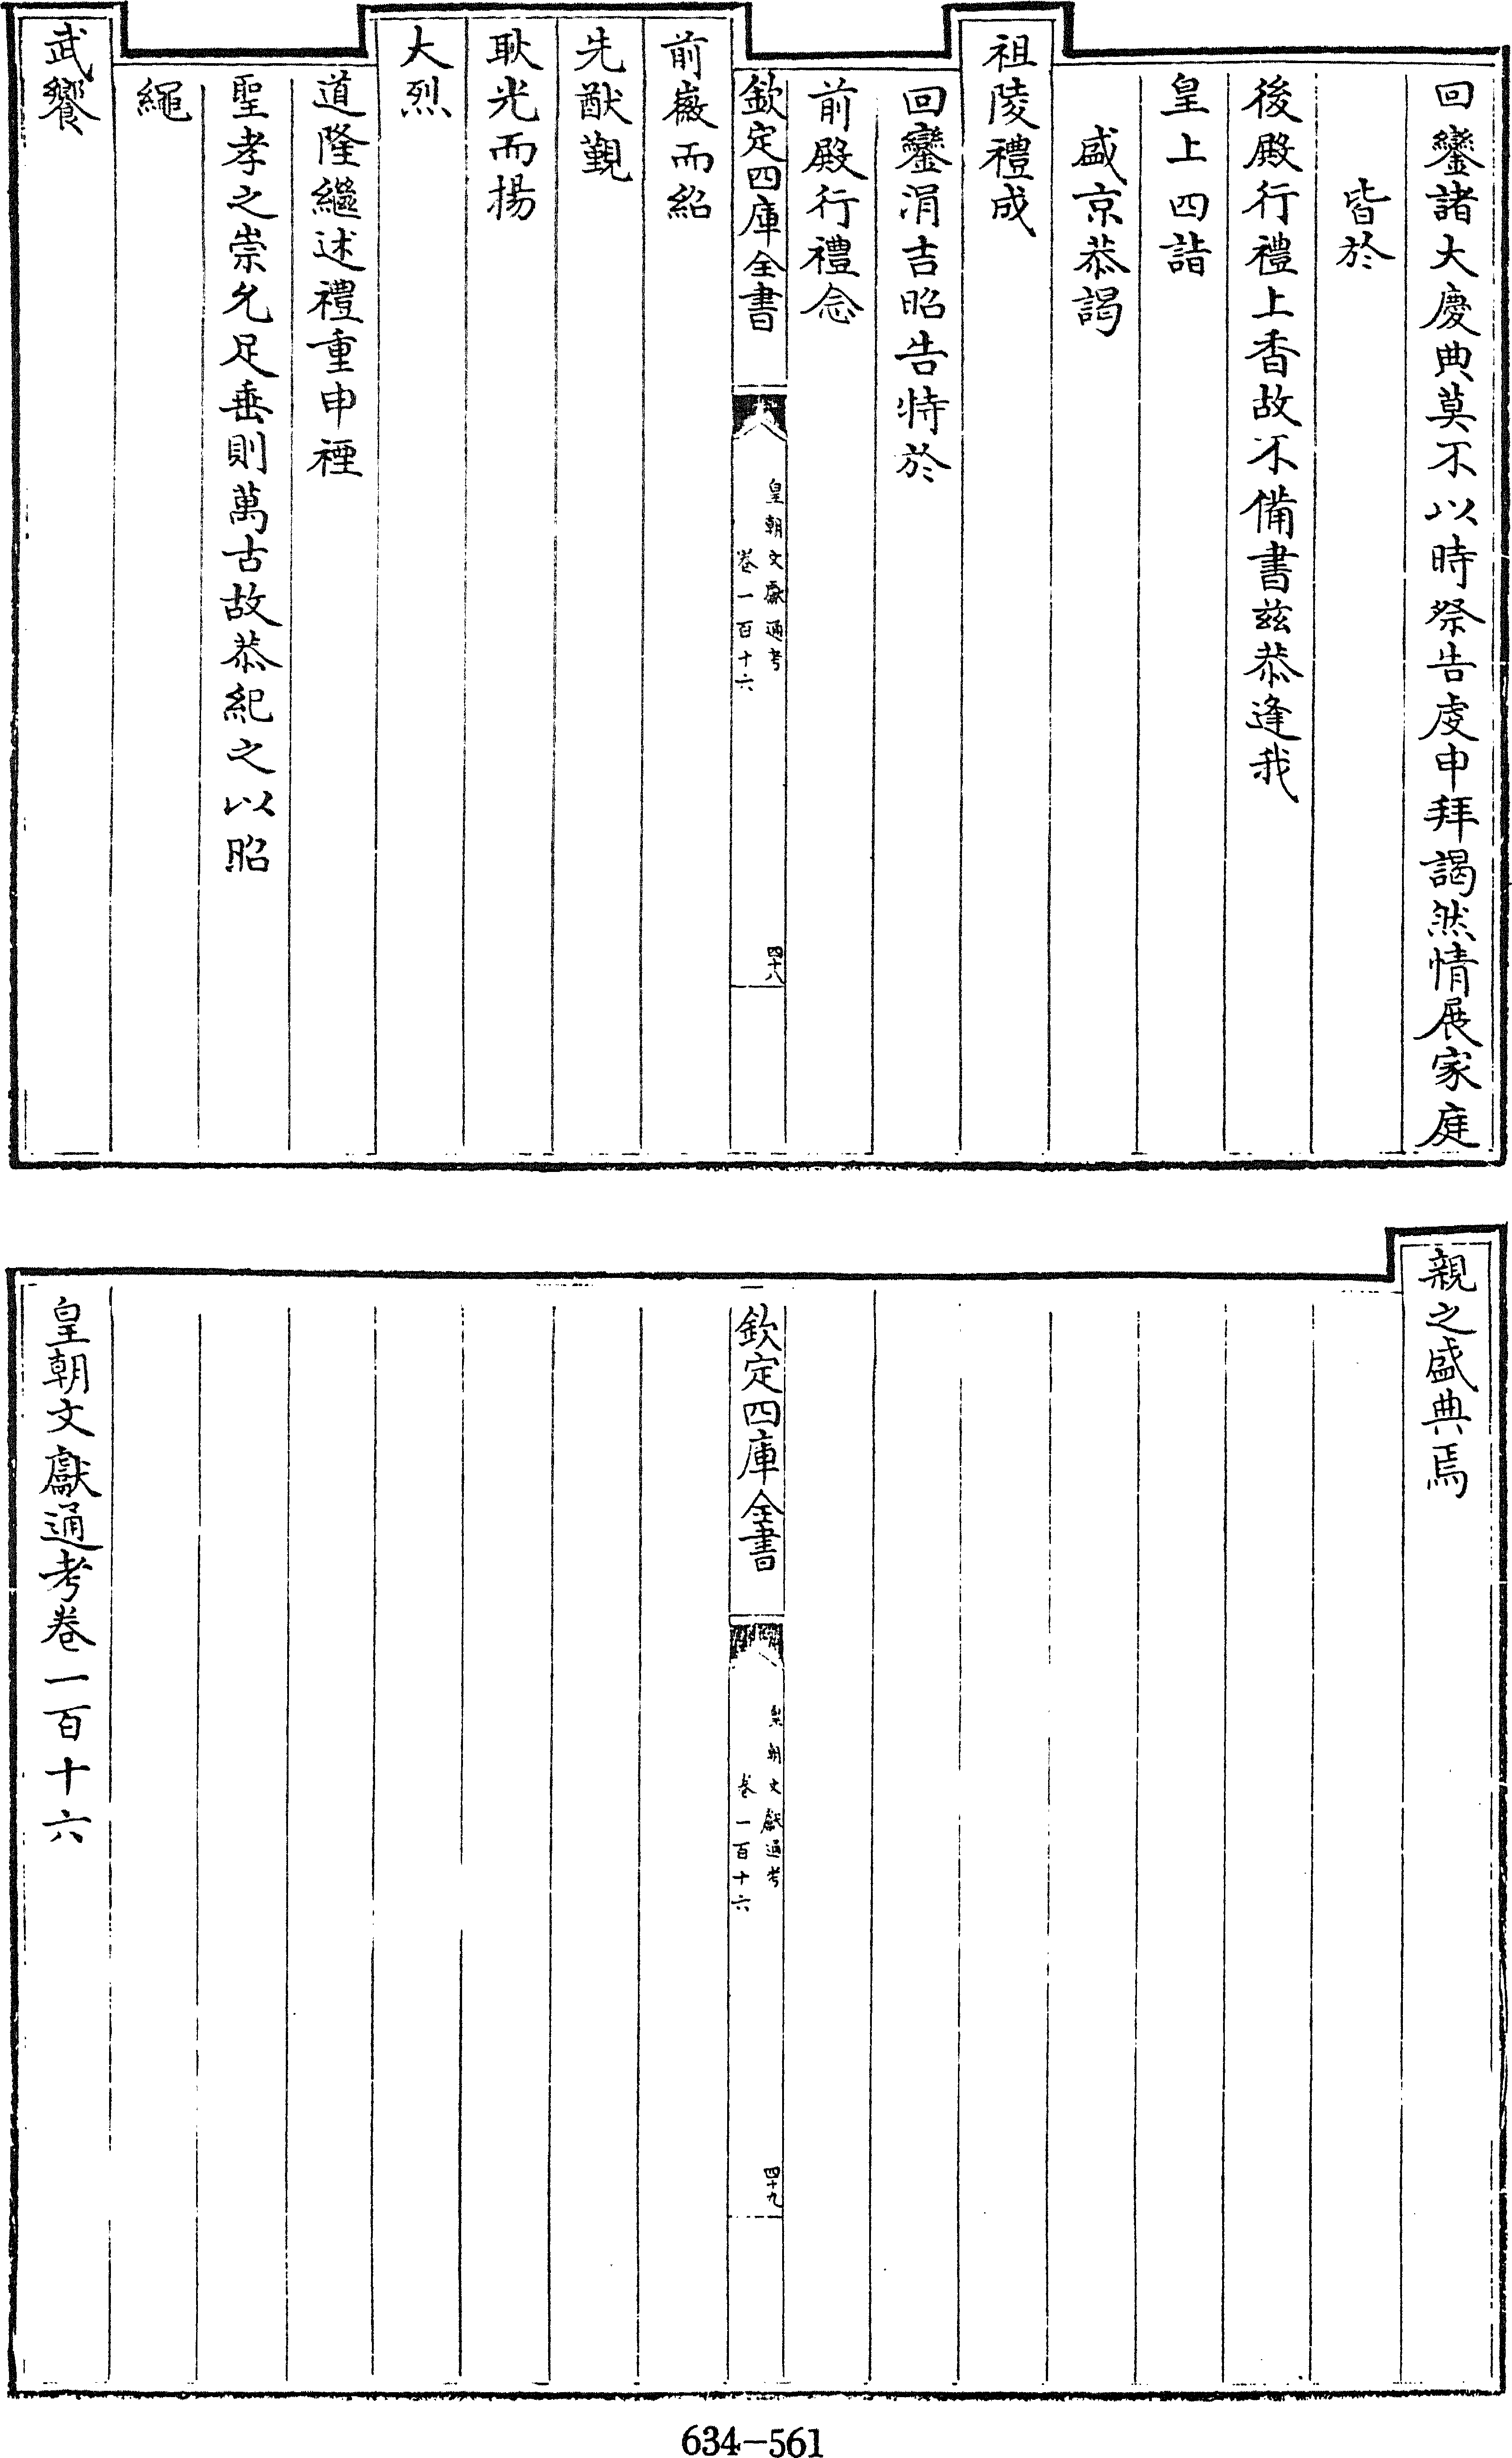 回鑾諸大慶典莫不以時祭告虔申拜謁然情展家庭
皆於
後殿行禮上香故不備書茲恭逢我
皇上四詣
盛京恭謁
祖陵禮成
回鑾涓吉昭告特於
前殿行禮念
欽定四庫全書
皇朝文獻通考
卷一百十六
四十八
前徽而紹
先猷覲
耿光而揚
大烈
道隆繼述禮重申禋
聖孝之崇允足垂則萬古故恭紀之以昭
繩
武饗
親之盛典焉
欽定四庫全書
皇朝文獻通考
卷一百十六
四十九
皇朝文獻通考卷一百十六
634-561